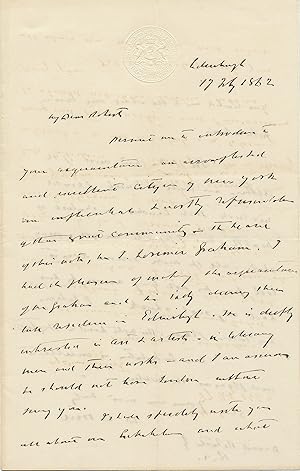 Edinburgh
17 July 1862
My dear Roberts
Permit me to introduce to
your acquaintance an accomplished
and excellent citizen of New York
an influential & worthy representative
of that great community — the bearer
of this note, Mr. J. Lorimer Graham. I
had the pleasure of making the acquaintance
of Mr Graham and his lady during their
late residence in Edinburgh. He is deeply
interested in art & artists — in literary
men and their works — and I am anxious
he should not leave London without
seeing you. I shall speedily write you
all about our Exhibition and what